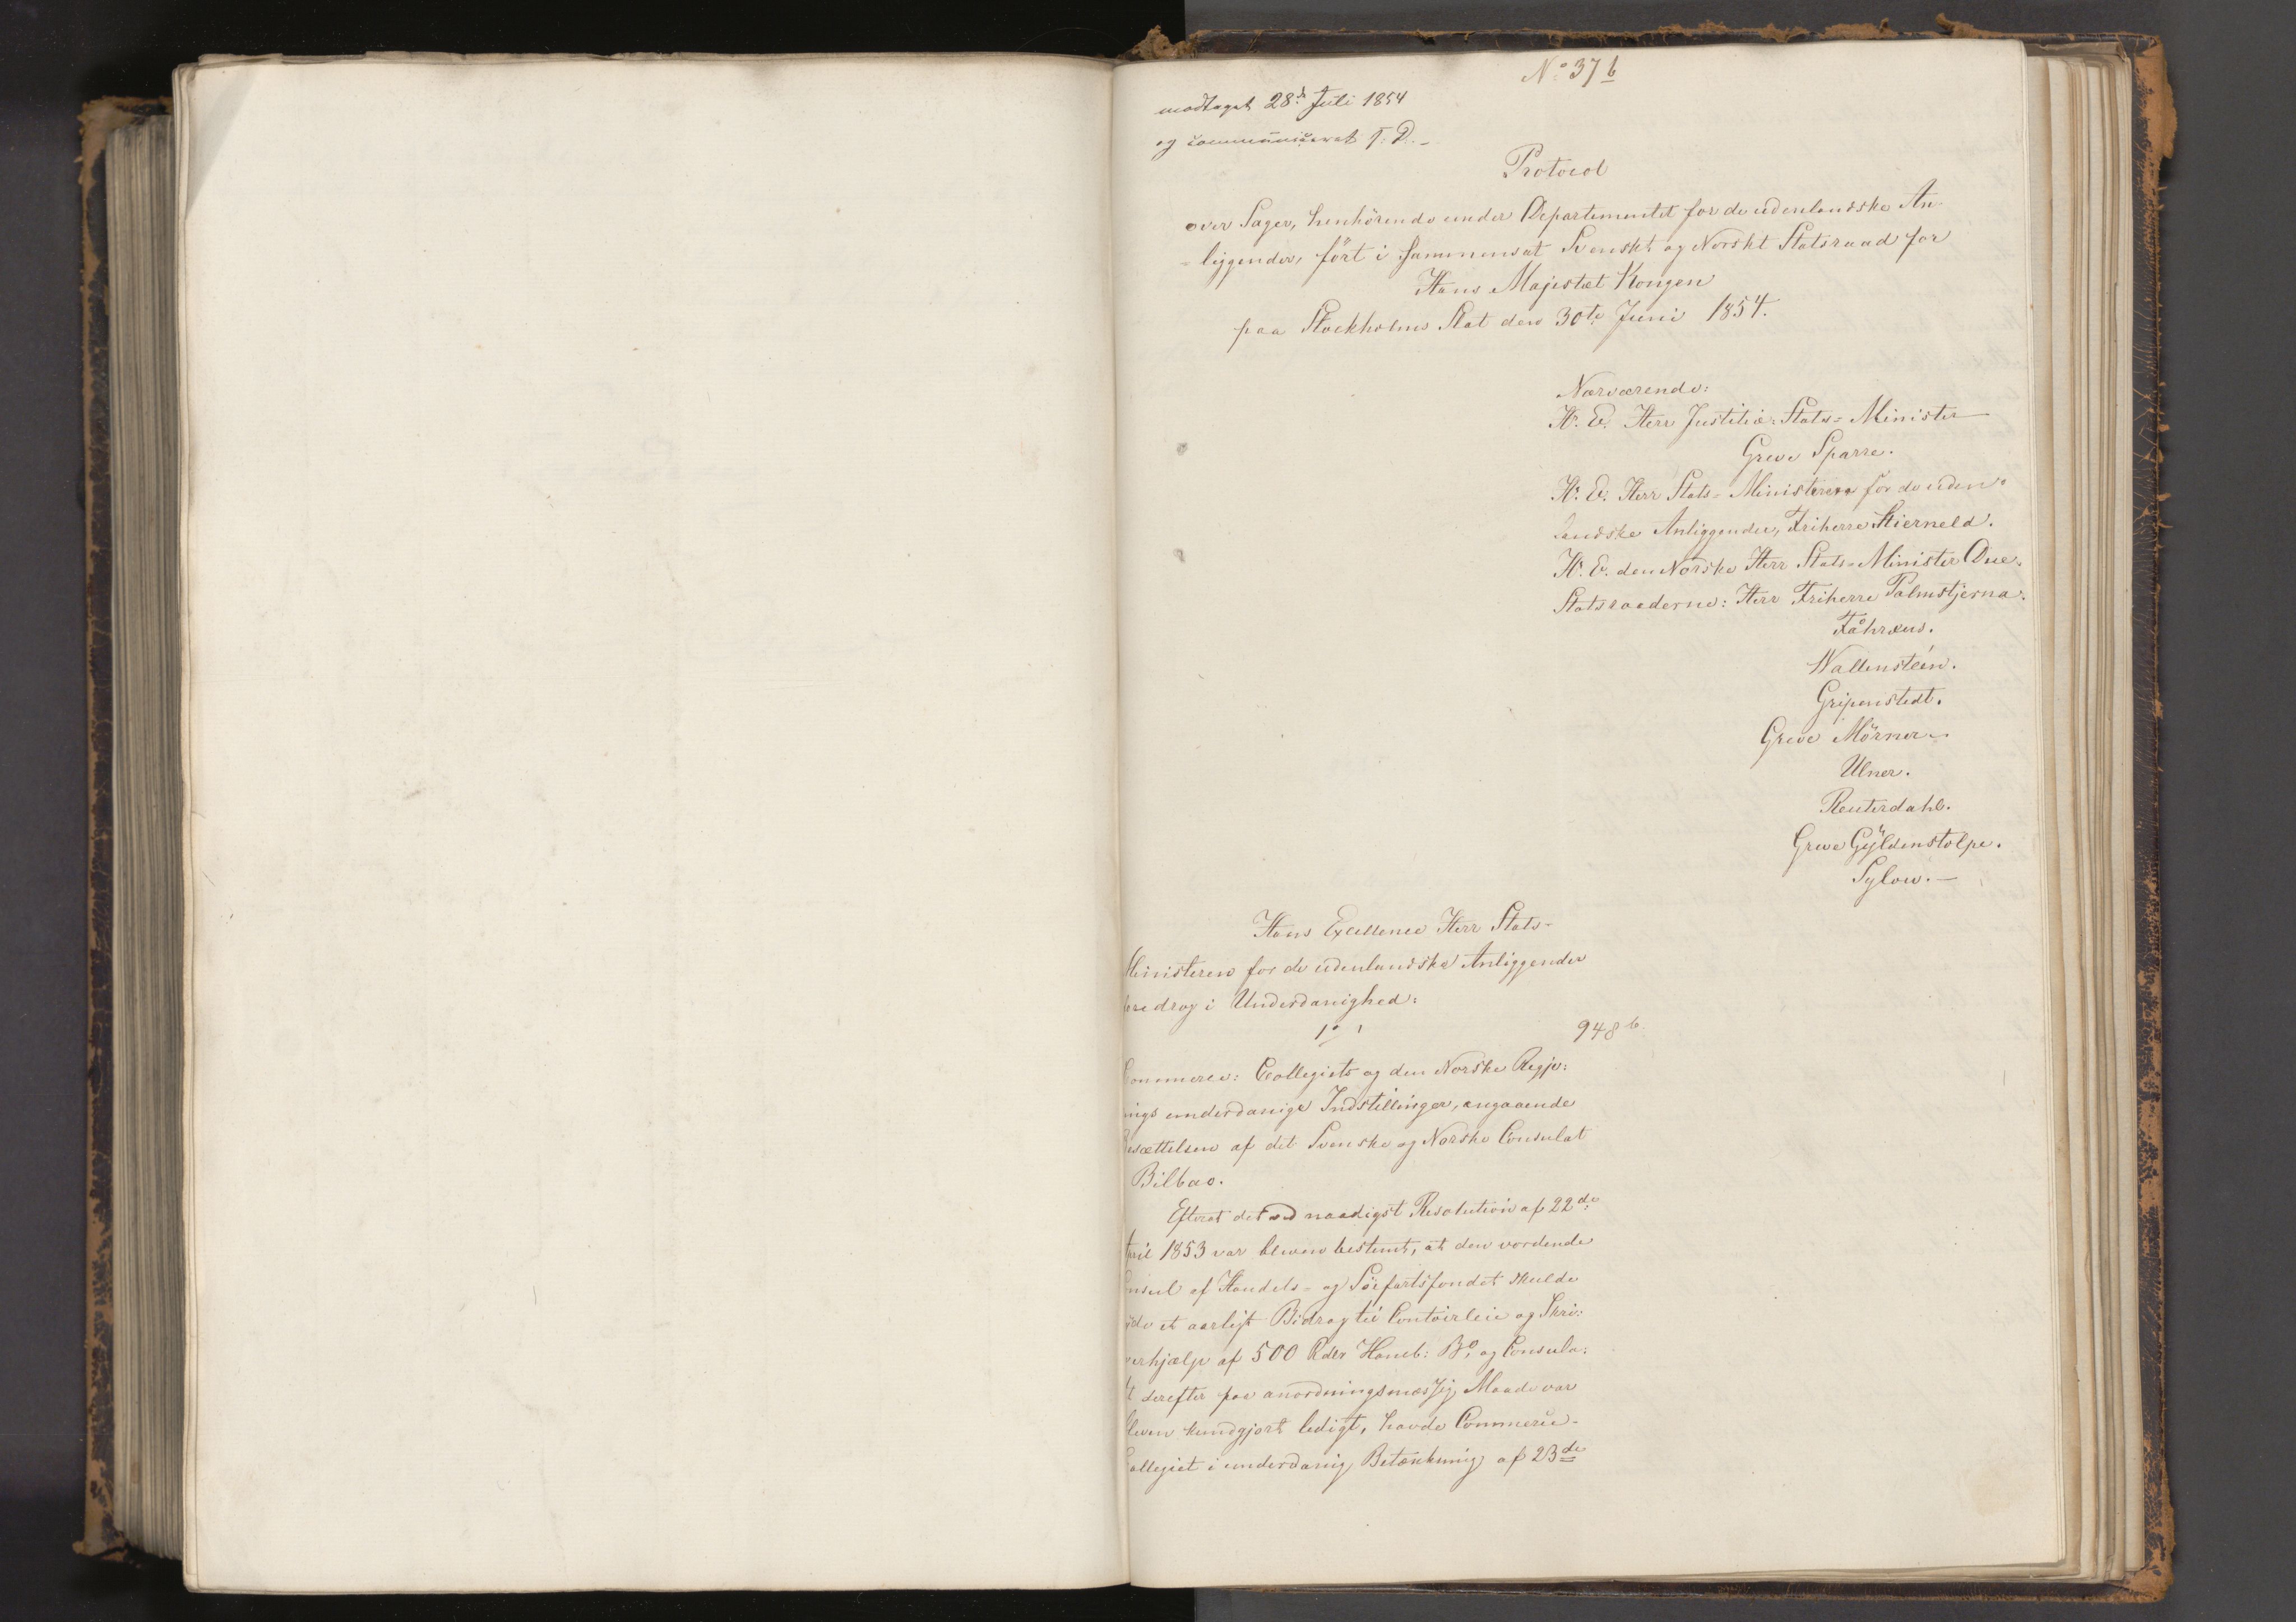 No 37 b
modtaget 28de Juli 1854
og communicerat F. D. -
Protocol
over Sager, henhörende under Departementet for de udenlandske An-
- liggender, fört i sammensat Svenskt og Norskt Statsraad for
Hans Majestæt Kongen
paa Stockholms Slot den 30te Juni 1854.
Nærværende:
H. E. Herr Justitiæ-Stats-Minister
Greve Sparre.
H. E. Herr Stats-Ministeren for de uden-
landske Anliggender, Friherre Stierneld.
H. E. den Norske Herr Stats-Minister Due.
Statsraaderne: Herr Friherre Palmstjerna.
Fåhræus.
Wallensteen.
Gripenstedt.
Greve Mörner.
Ulner.
Reuterdahl.
Greve Gyldenstolpe.
Sylow. -
Hans Excellence Herr Stats-
Ministeren for de udenlandske Anliggender
foredrog i Underdanighed:
1o
948 b.
Commerce-Collegiets og den Norske Regje-
rings underdanige Indstillinger, angaaende
Besættelsen af det Svenske og Norske Consulat
Bilbao.
Efterat det ved naadigst Resolution af 22de
April 1853 var bleven bestemt, at den vordende
Consul af Handels- og Söefartsfondet skulde
nyde et aarligt Bidrag til Contoirleie og Skri-
verhjælp af 500 Rdlr Hamb: Bo, og Consula-
tet derefter paa anordningsmæssig Maade var
bleven kundgjort ledigt, havde Commerce-
Collegiet i underdanig Betænkning af 23de